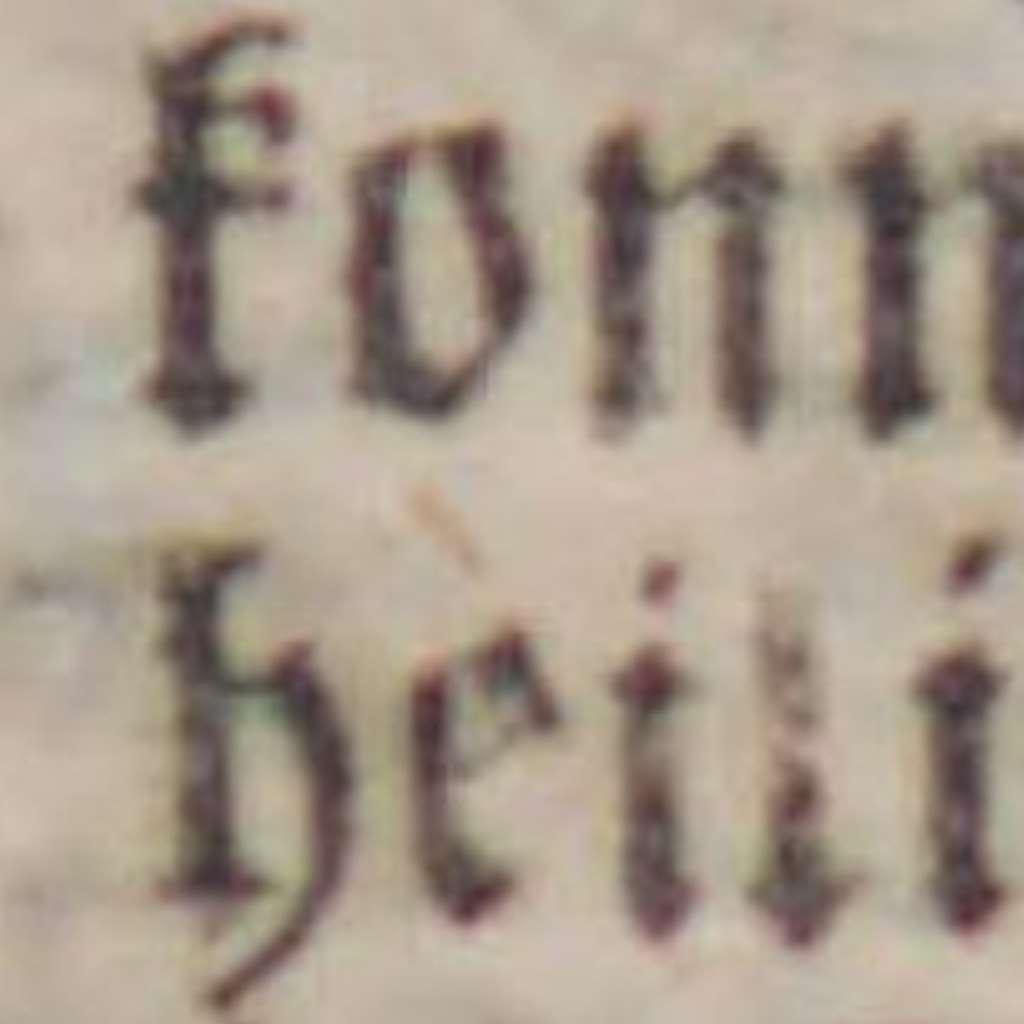 fonn
heili